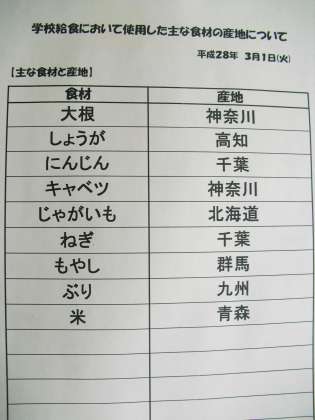 学校給食において使用した主な食材の産地について
平成28年 3月1日(火)
【主な食材と産地】
食材 産地
大根 神奈川
しょうが 高知
にんじん 千葉
キャベツ 神奈川
じゃがいも 北海道
ねぎ 千葉
もやし 群馬
ぶり 九州
米 青森